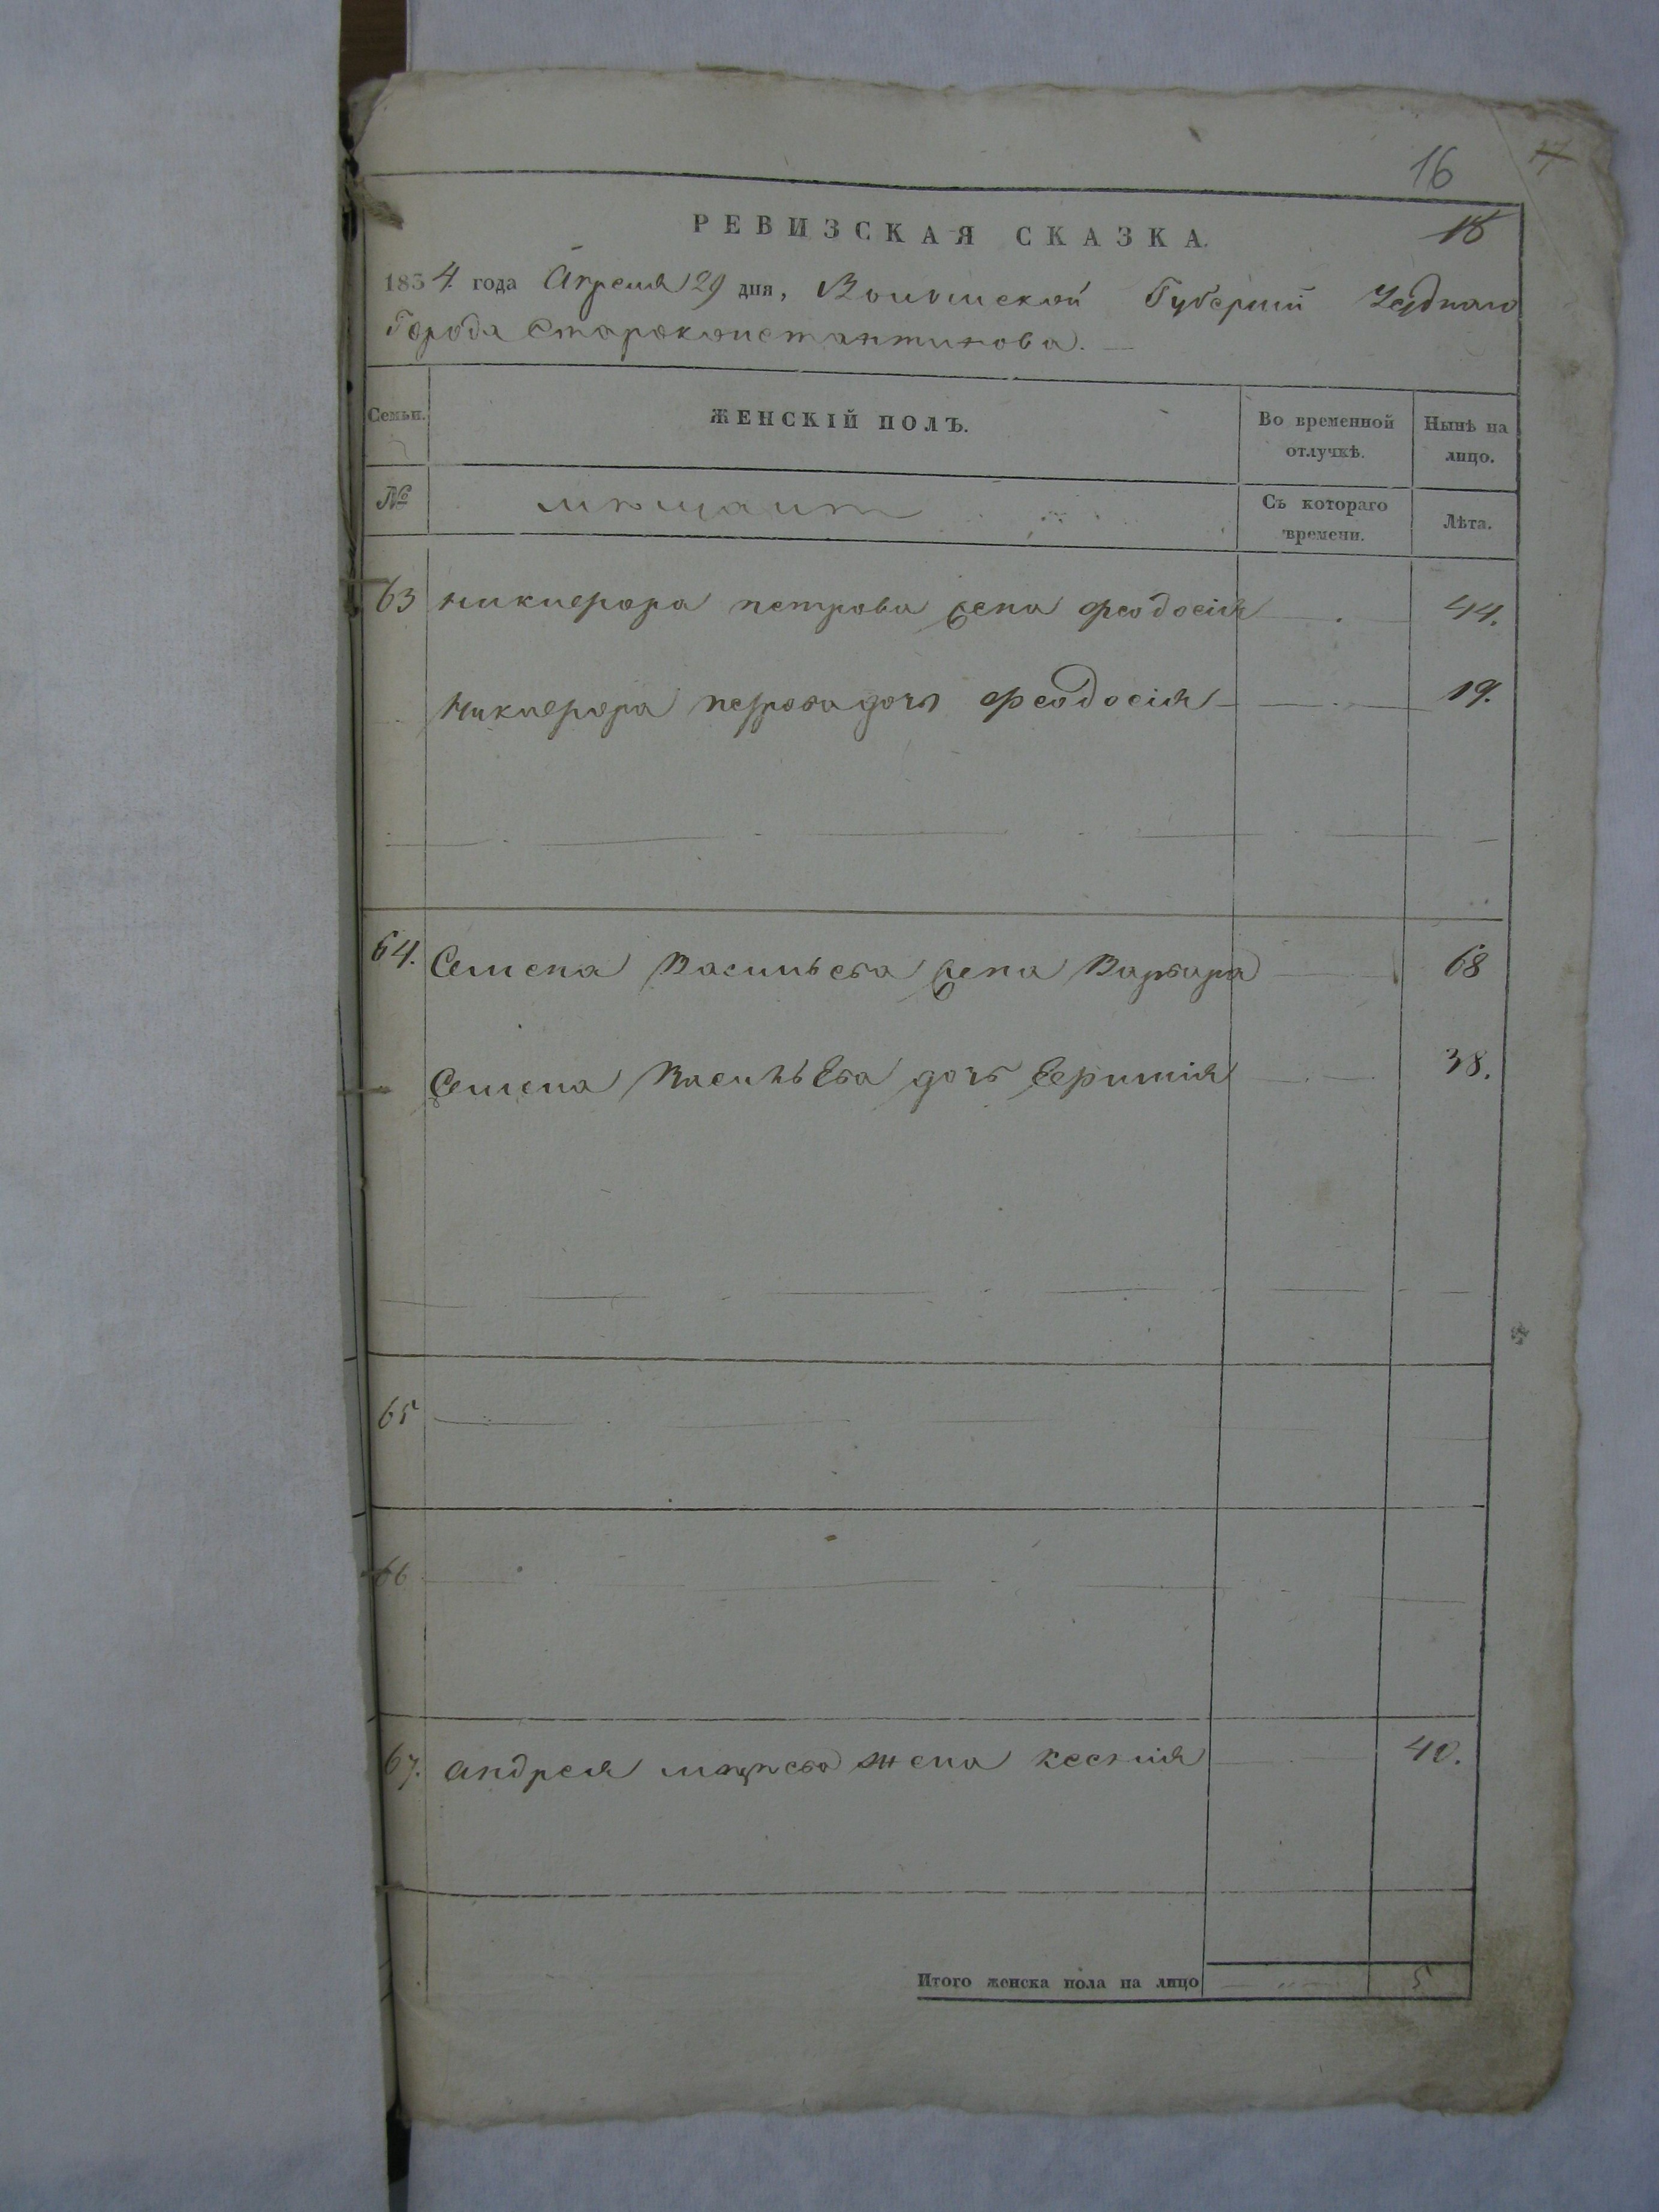 16
17
18
РЕВИЗСКАЯ СКАЗКА.
1834 года Апреля 29 дня, Волынской Губернии Уезднаго
Города Староконстантинова.
Семьи. ЖЕНСКІЙ ПОЛЪ. Во временной отлучкѣ. Нынѣ на лицо.
№ Съ котораго времени. Лѣта.
63 Никифора петрова жена феодосія 44.
Никифора петрова дочь феодосія 19.
64. Семена Васильева жена Варвара 68
Семена Васильева дочь 38.
65
66
67. андрея жена ксенія 40.
Итого женска пола на лицо 5